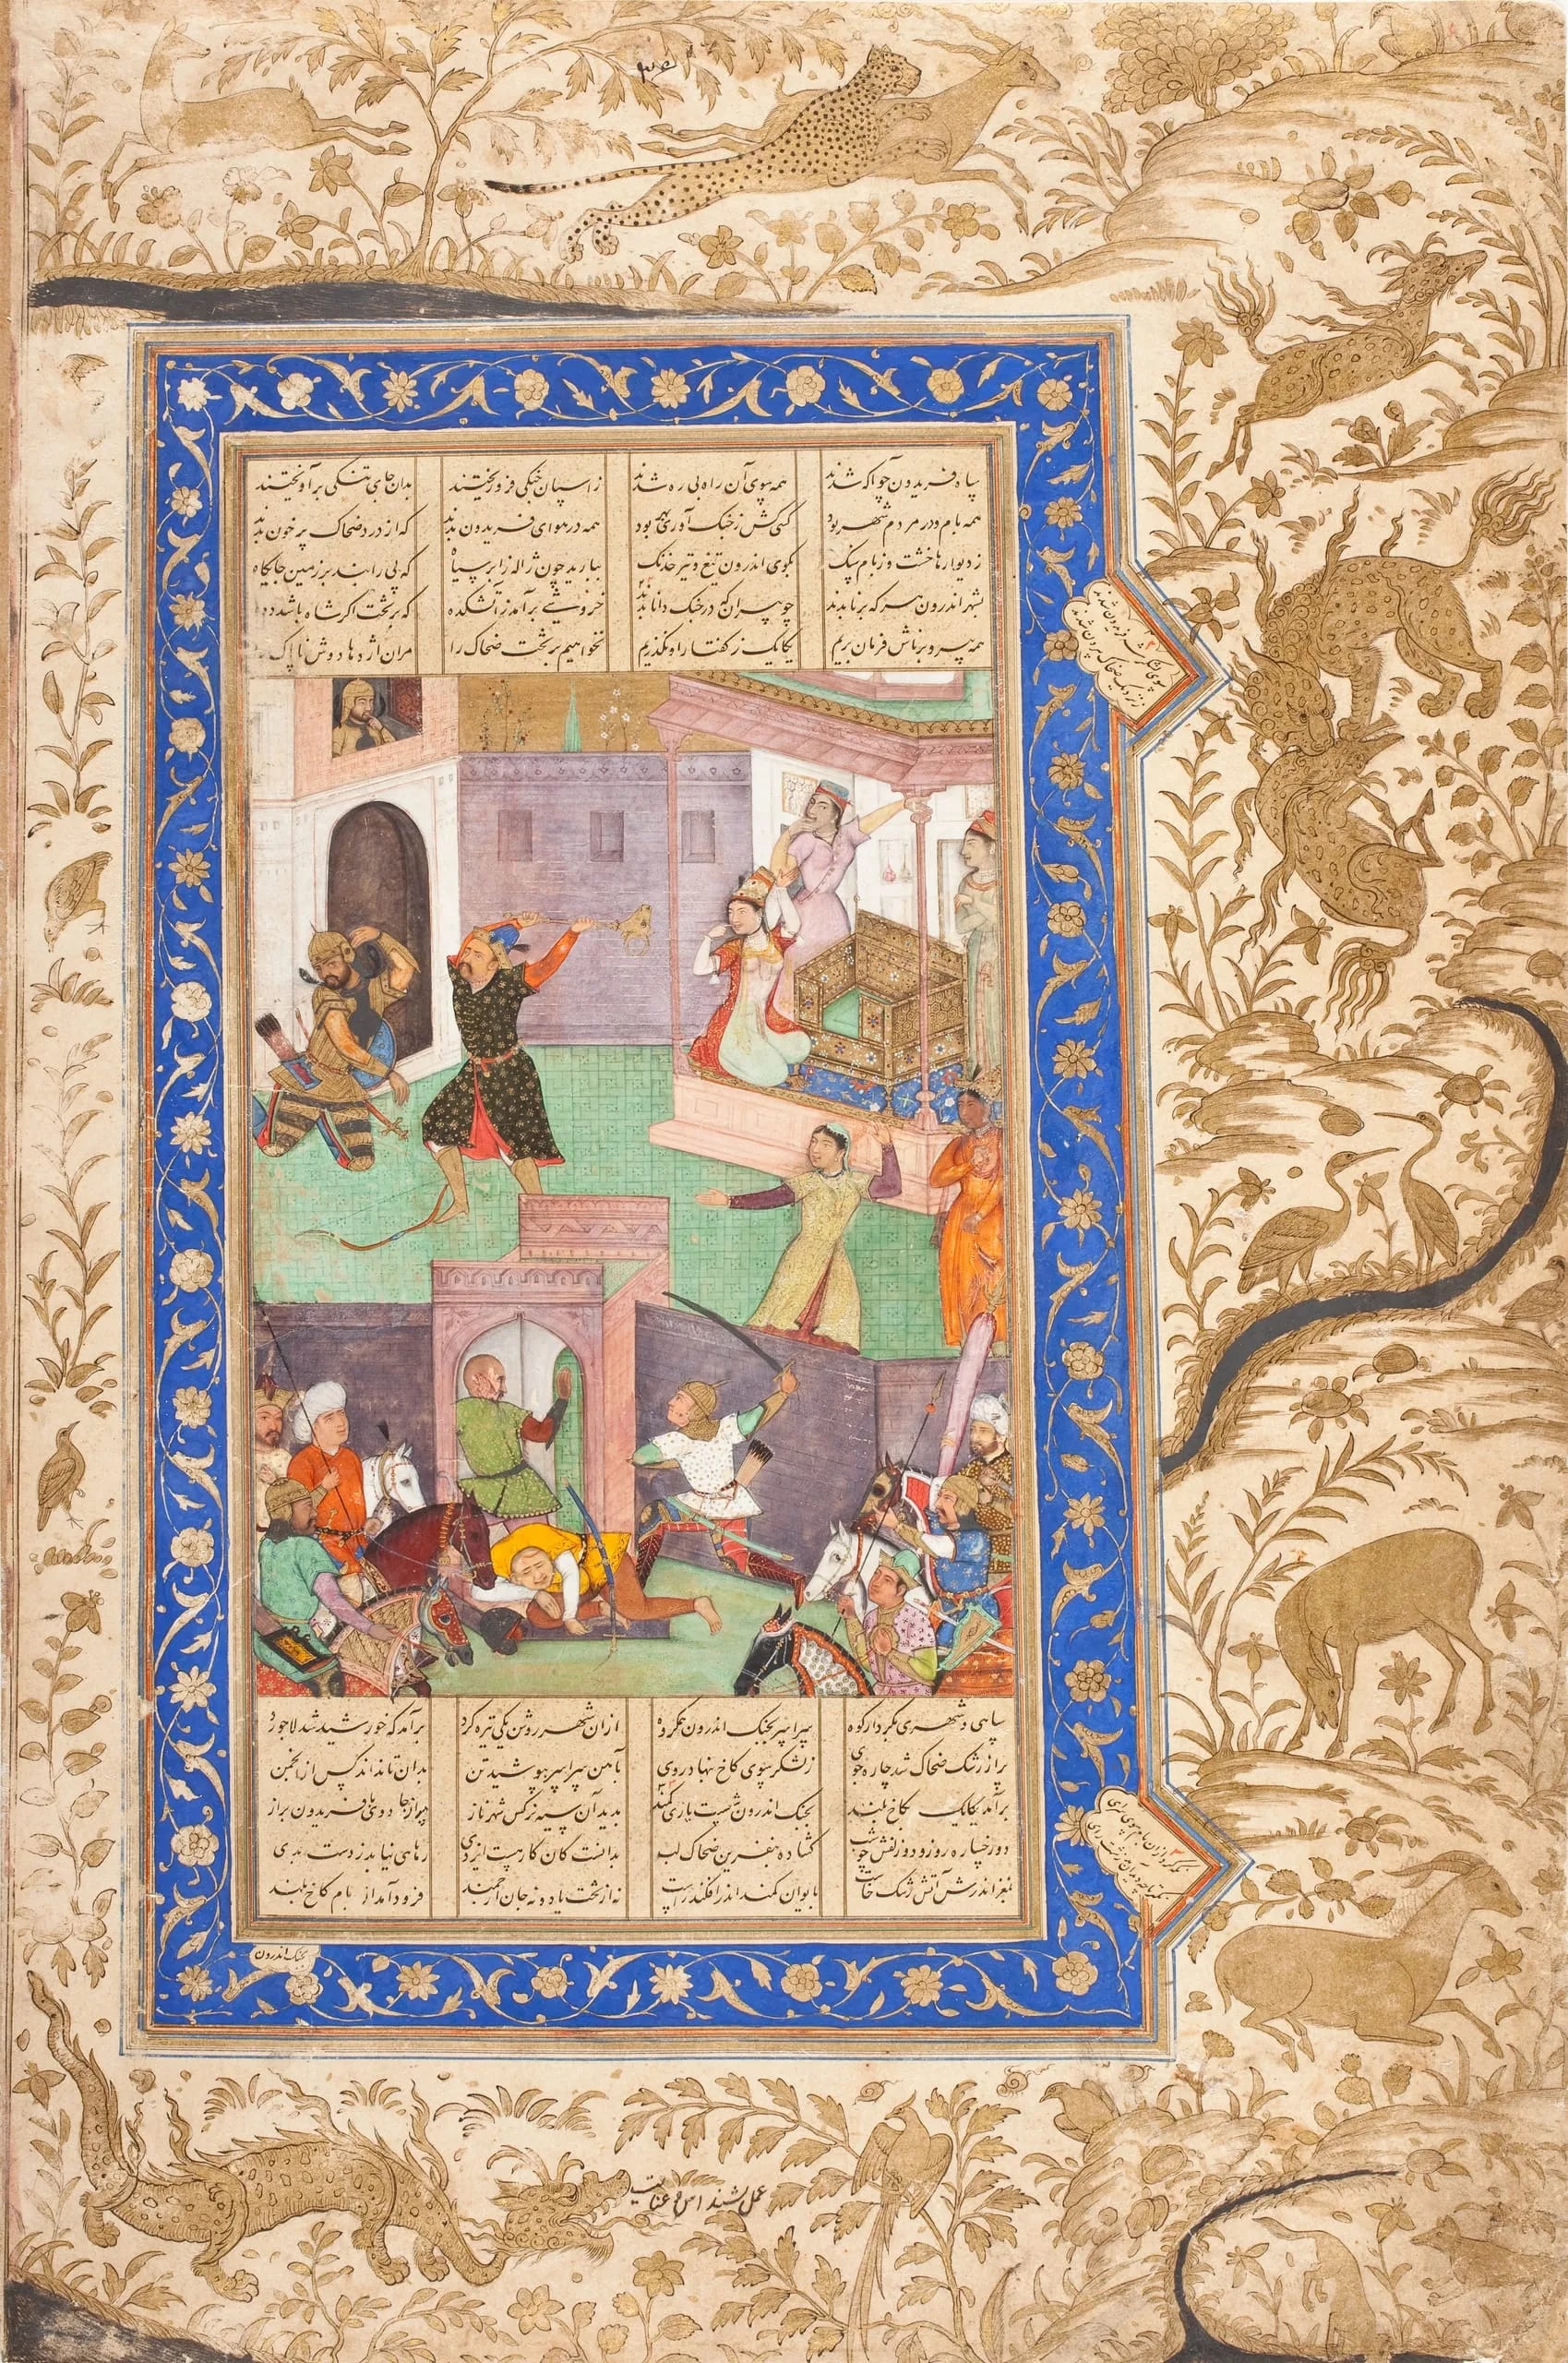 سپاه فریدون چو آگه شدند همه سوی آن راه بی ره شدند
ز اسپان جنگی فرو ریختند بدان جای تنگی بر آویختند
همه بام و در مردم شهر بود کسی کش ز جنگ آوری بهر بود
همه در هوای فریدون بدند که از درد ضحاک پر خون بدند
ز دیوارها خشت و ز بام سنگ بکوی اندرون تیغ و تیر خدنگ
ببارید چون ژاله ز ابر سیاه که پی را نبد بر زمین جایگاه
بشهر اندرون هر که برنا بدند چو پیران که در جنگ دانا بدند
خروشی برآمد ز آتشکده که بر تخت اگر شاه باشد دده
همه پیر و برناش فرمان بریم یکایک ز گفتار او نگذریم
نخواهیم بر تخت ضحاک را مر آن اژدها دوش ناپاک را
سپاهی و شهری بکردار کوه سراسر بجنگ اندرون همگروه
از آن شهر روشن یکی تیره گرد برآمد که خورشید شد لاجورد
پر از رشک ضحاک شد چاره جوی ز لشکر سوی کاخ بنهاد روی
بآهن سراسر بپوشید تن بدان تا نداند کس از انجمن
برآمد یکایک بکاخ بلند بجنگ اندرون شست یازی کمند
بدید آن سیه نرگس شهرناز پر از جادوی با فریدون براز
دو رخساره روز و دو زلفش چو شب گشاده بنفرین ضحاک لب
بدانست کان کار هست ایزدی رهایی نیابد ز دست بدی
بمغز اندرش آتش رشک خاست بایوان کمند اندر افکند راست
نه از تخت یاد و نه جان ارجمند فرود آمد از بام کاخ بلند
بجنگ اندرون